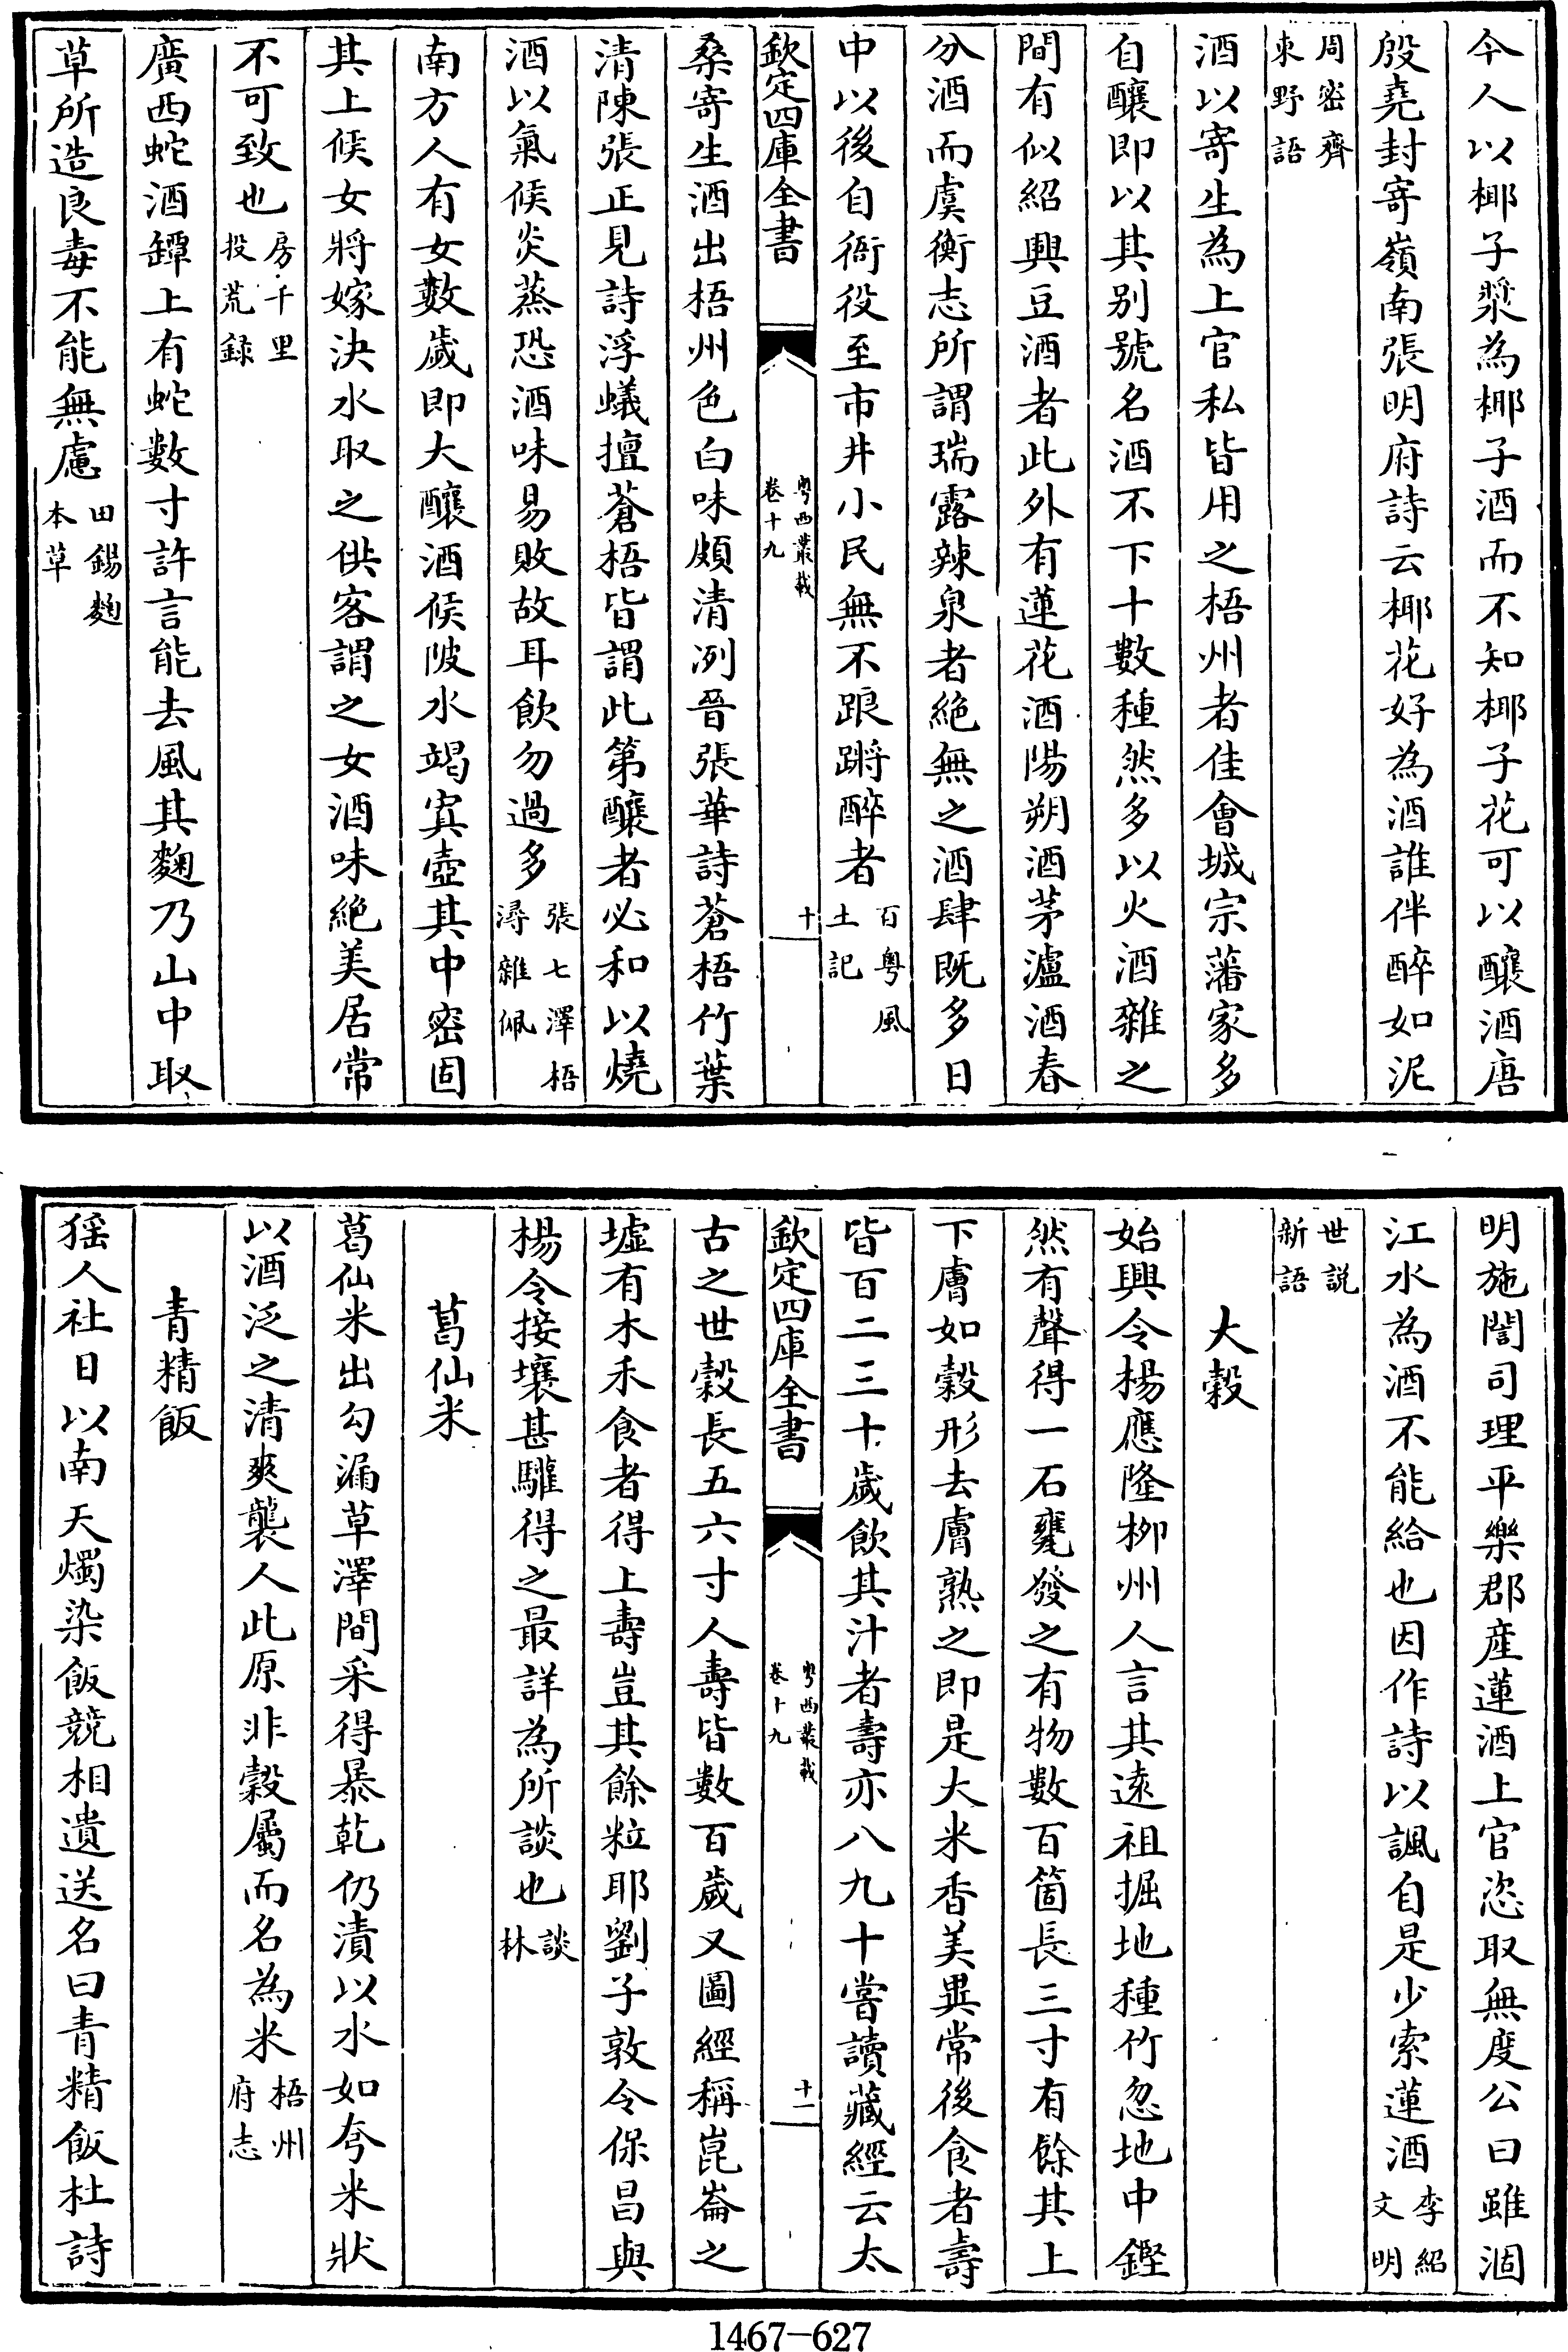 今人以椰子漿為椰子酒而不知椰子花可以釀酒唐
殷堯封寄嶺南張明府詩云椰花好為酒誰伴醉如泥
周密齊
東野語
酒以寄生為上官私皆用之梧州者佳會城宗藩家多
自釀即以其别號名酒不下十數種然多以火酒雜之
間有似紹興豆酒者此外有蓮花酒陽朔酒茅瀘酒春
分酒而虞衡志所謂瑞露辣泉者絶無之酒肆既多日
中以後自衙役至市井小民無不踉蹡醉者百粤風
土記
欽定四庫全書
粤西叢載
卷十九
十
桑寄生酒出梧州色白味頗清冽晉張華詩蒼梧竹葉
清陳張正見詩浮蟻擅蒼梧皆謂此第釀者必和以燒
酒以氣候炎蒸恐酒味易敗故耳飲勿過多張七澤梧
潯雜佩
南方人有女數歲即大釀酒候陂水竭寘壺其中密固
其上候女將嫁決水取之供客謂之女酒味絶美居常
不可致也房千里
投荒録
廣西蛇酒罈上有蛇數寸許言能去風其麴乃山中取
草所造良毒不能無慮田錫麴
本草
明施誾司理平樂郡産蓮酒上官恣取無度公曰雖涸
江水為酒不能給也因作詩以諷自是少索蓮酒李紹
文明
世説
新語
大穀
始興令楊應隆柳州人言其遠祖掘地種竹忽地中鏗
然有聲得一石甕發之有物數百箇長三寸有餘其上
下膚如穀形去膚熟之即是大米香美異常後食者壽
皆百二三十歲飲其汁者壽亦八九十嘗讀藏經云太
欽定四庫全書
粤西叢載
卷十九
十一
古之世穀長五六寸人壽皆數百歲又圖經稱崑崙之
墟有木禾食者得上壽豈其餘粒耶劉子敦令保昌與
楊令接壤甚驩得之最詳為所談也談
林
葛仙米
葛仙米出勾漏草澤間采得暴乾仍漬以水如夸米狀
以酒泛之清爽襲人此原非穀屬而名為米梧州
府志
青精飯
猺人社日以南天燭染飯競相遺送名曰青精飯杜詩
1467-627